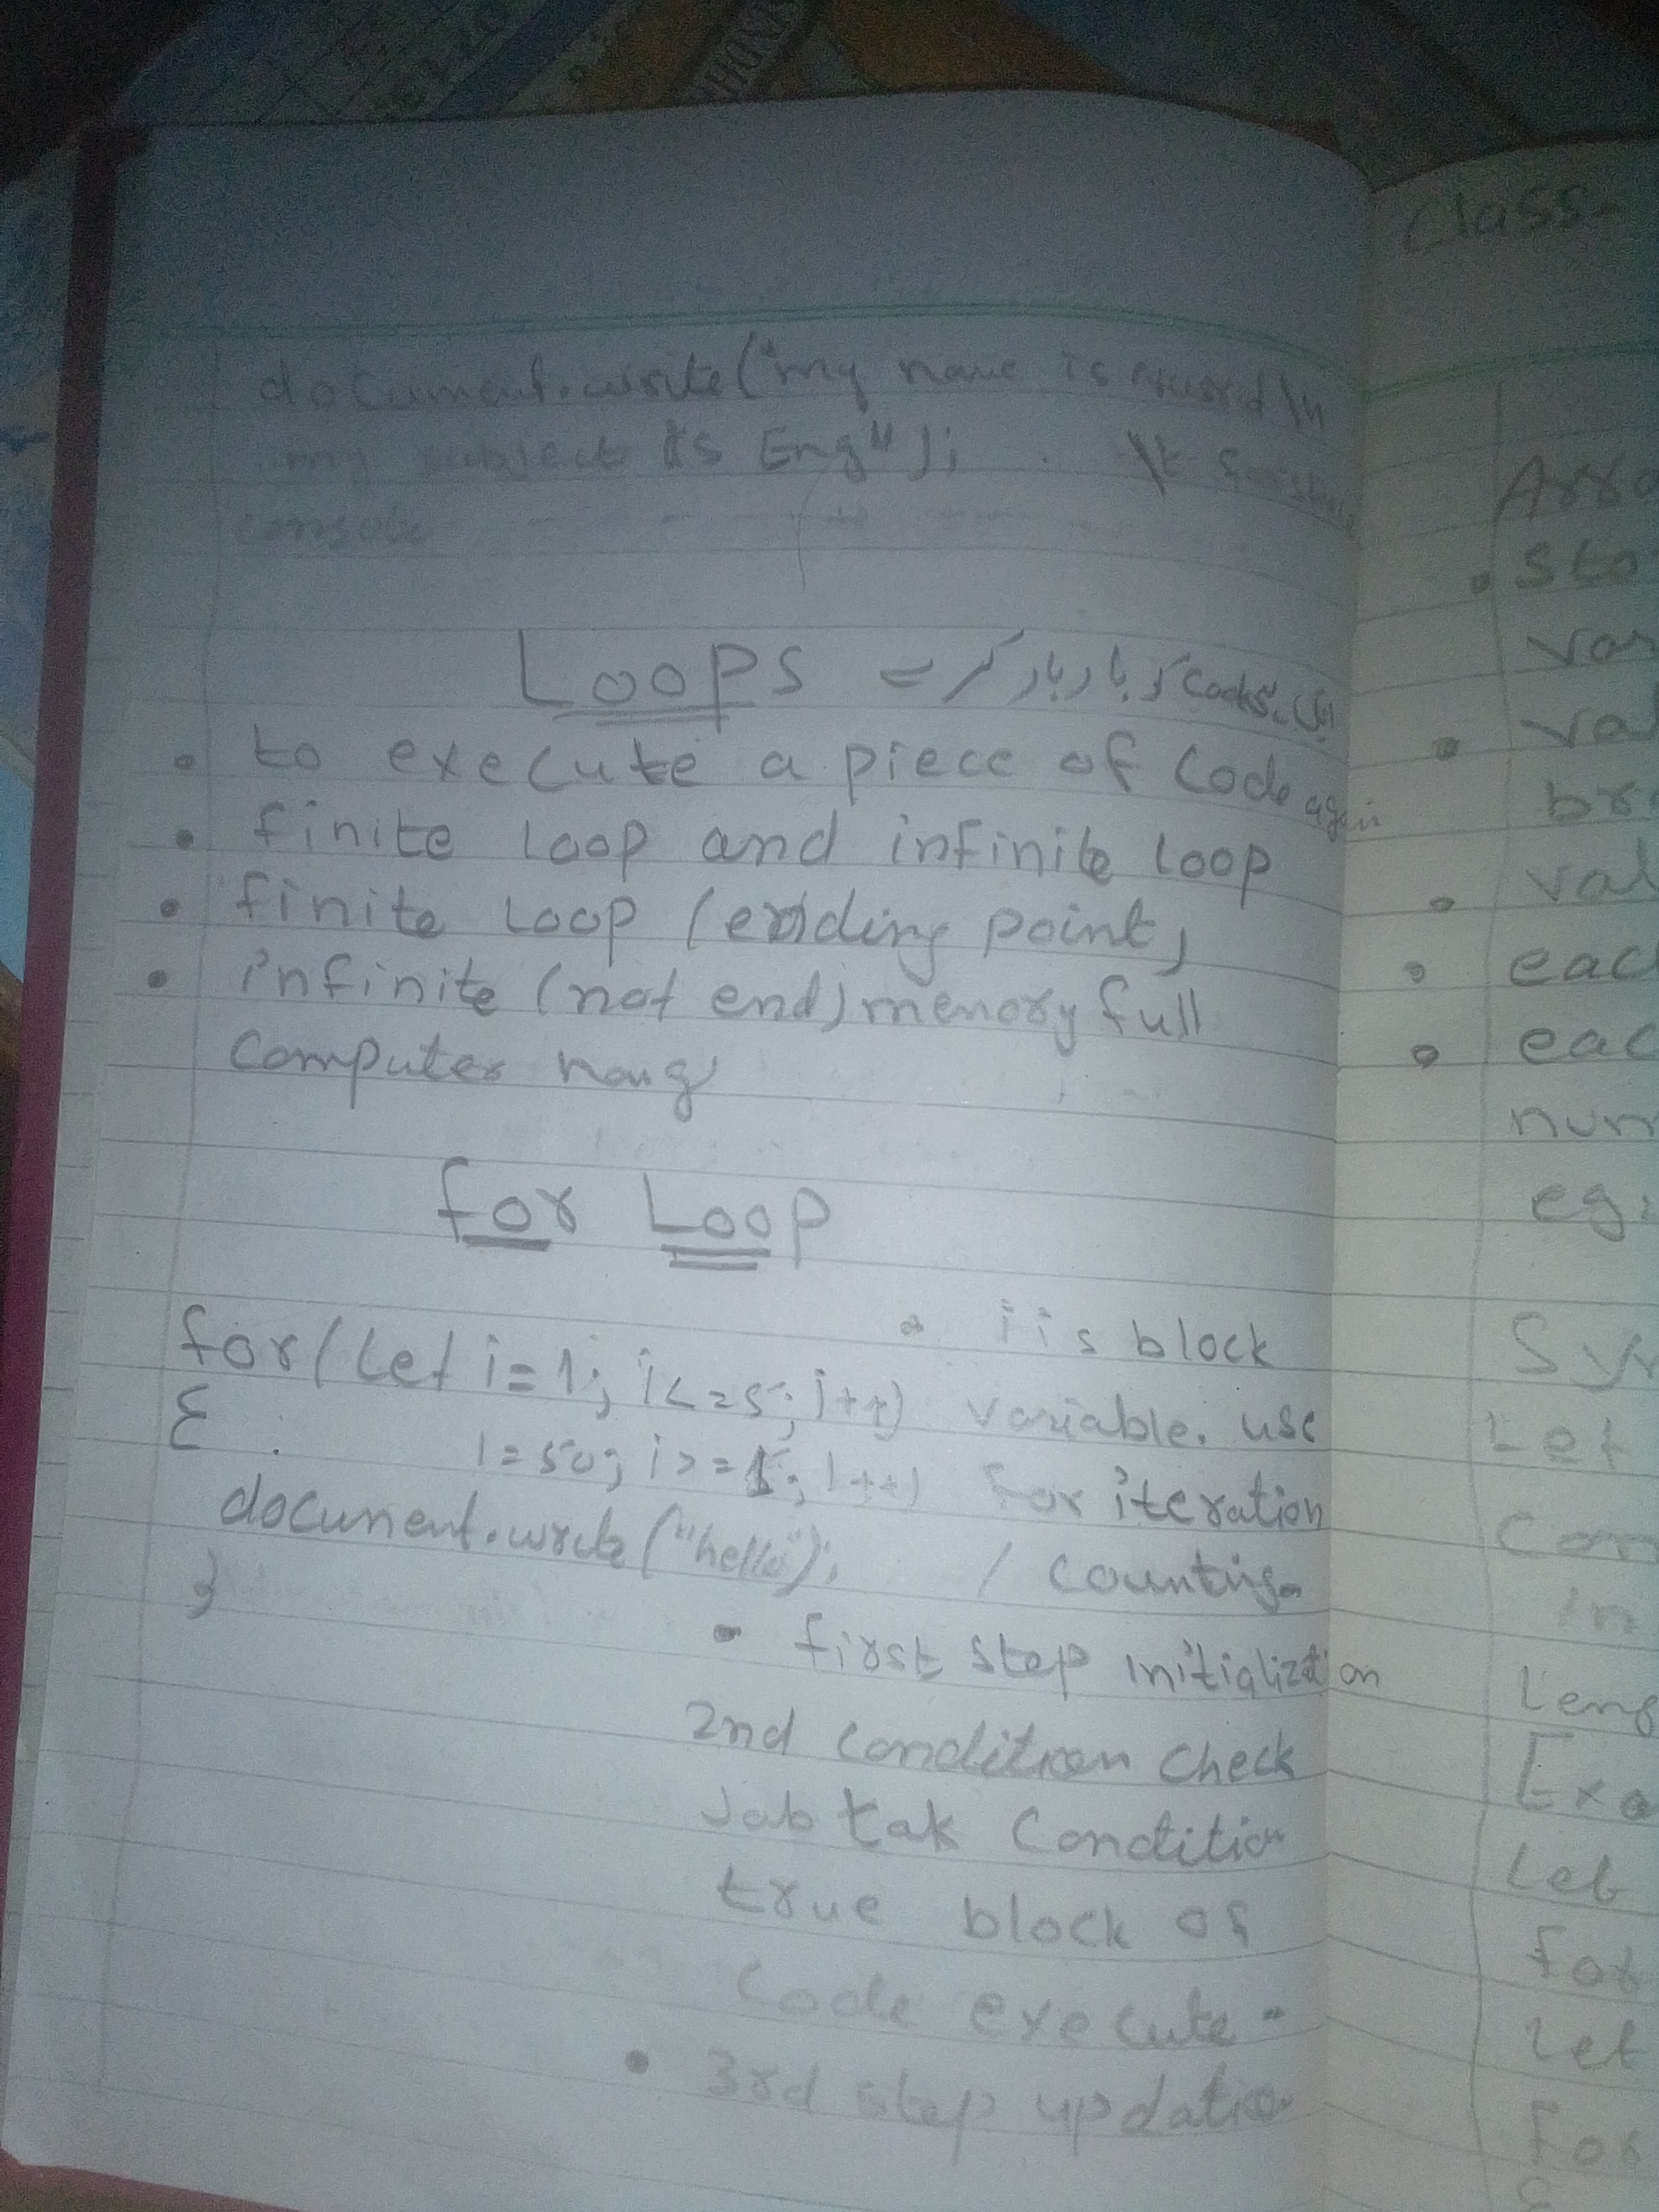 document.write("my name is \n
my subject is Eng");
console
Loops = ایک code کو بار بار کر
• to execute a piece of code again
• finite loop and infinite loop
• finite loop (ending point)
• infinite (not end) memory full
computer hang
for Loop
for(let i=1; i<=5; i++)
{
i=50; i>=1; i++)
document.write("hello");
}
• i is block
variable. use
for iteration
/ counting
• first step initialization
2nd condition check
Jab tak condition
true block of
code execute -
• 3rd step updation
Class-
Arra
• sto
var
• va
br
• val
• eac
• eac
num
eg:
Sy
Let
Con
in
Leng
Exa
Let
for
let
for